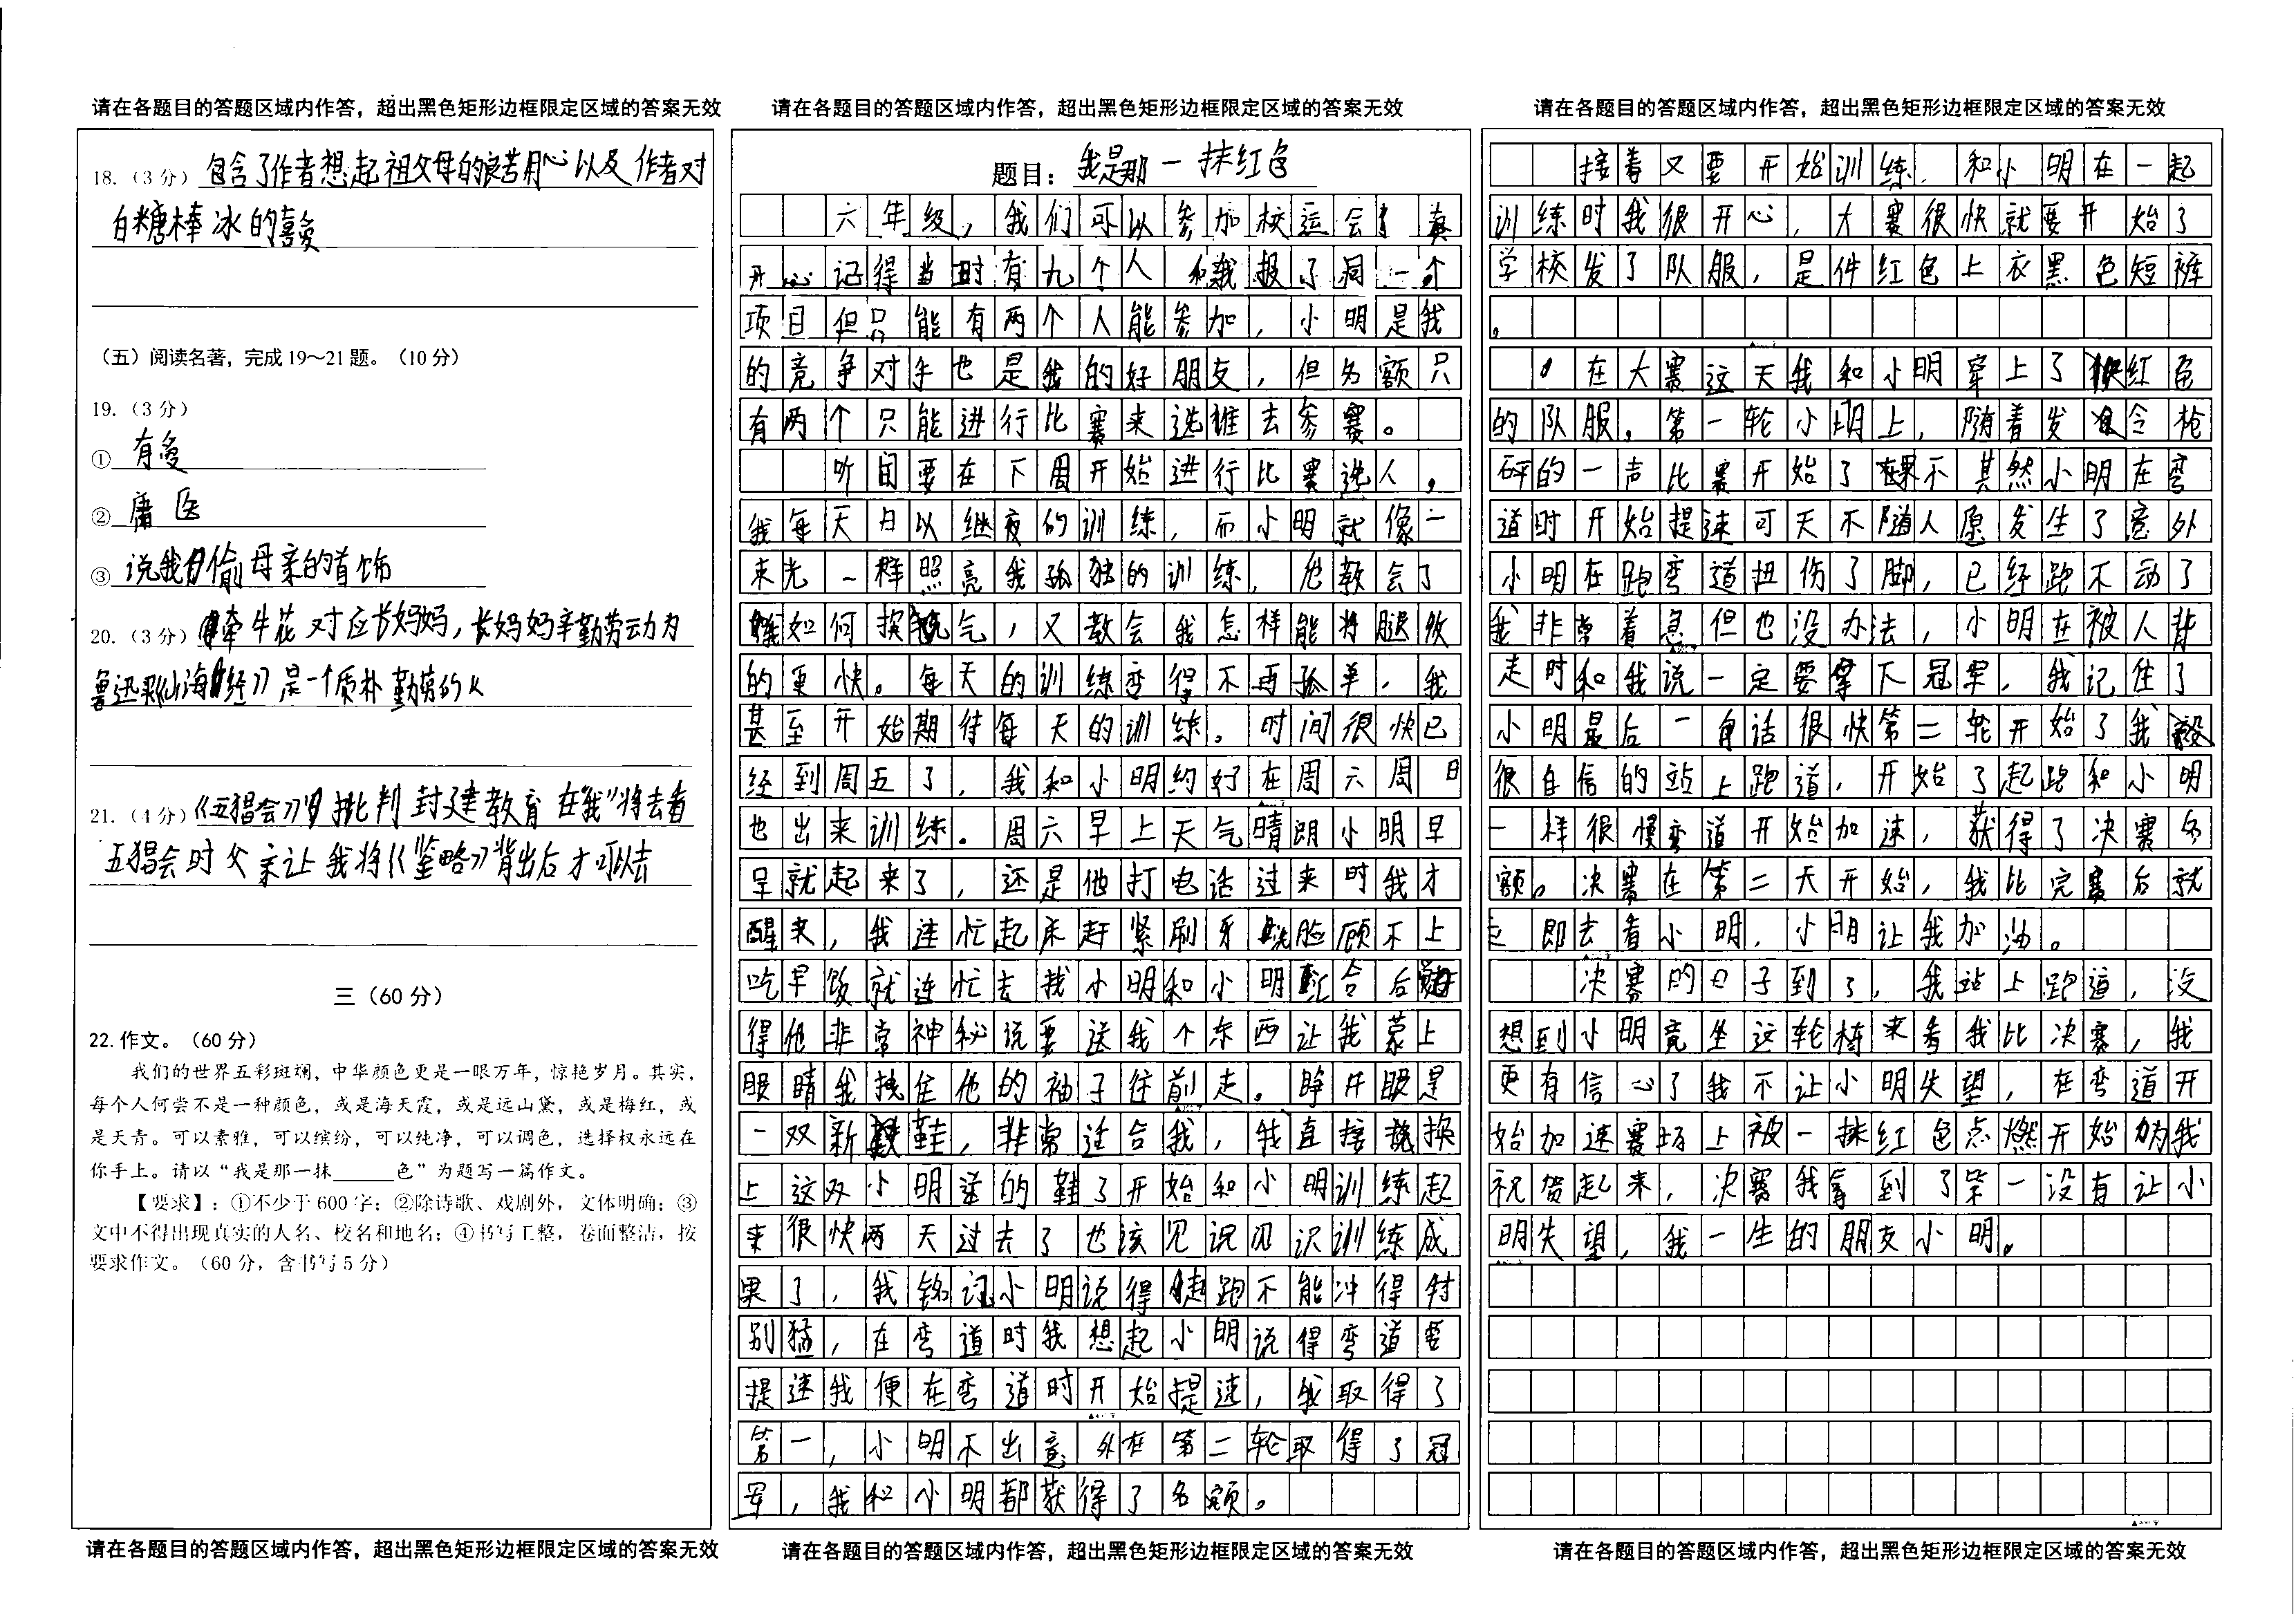 请在各题目的答题区域内作答，超出黑色矩形边框限定区域的答案无效
18.（3分）包含了作者想起祖父母的良苦用心以及作者对
白糖棒冰的喜爱
（五）阅读名著，完成19～21题。（10分）
19.（3分）
①有多
②庸医
③说我偷母亲的首饰
20.（3分）牵牛花对应长妈妈，长妈妈辛勤劳动为
鲁迅买《山海经》是一个质朴勤劳的人
21.（4分）《五猖会》批判封建教育在“我”将去看
五猖会时父亲让我将《鉴略》背出后才可以去
三（60分）
22.作文。（60分）
我们的世界五彩斑斓，中华颜色更是一眼万年，惊艳岁月。其实，
每个人何尝不是一种颜色，或是海天霞，或是远山黛，或是梅红，或
是天青。可以素雅，可以缤纷，可以纯净，可以调色，选择权永远在
你手上。请以“我是那一抹______色”为题写一篇作文。
【要求】：①不少于600字；②除诗歌、戏剧外，文体明确；③
文中不得出现真实的人名、校名和地名；④书写工整，卷面整洁，按
要求作文。（60分，含书写5分）
请在各题目的答题区域内作答，超出黑色矩形边框限定区域的答案无效
请在各题目的答题区域内作答，超出黑色矩形边框限定区域的答案无效
题目：我是那一抹红色
六年级，我们可以参加校运会了真
开心记得当时有九个人和我报了同一个
项目但只能有两个人能参加，小明是我
的竞争对手也是我的好朋友，但名额只
有两个只能进行比赛来选谁去参赛。
听闻要在下周开始进行比赛选人，
我每天日以继夜的训练，而小明就像一
束光一样照亮我孤独的训练，他教会了
我如何换气，又教会我怎样能将腿收
的更快。每天的训练变得不再孤单，我
甚至开始期待每天的训练。时间很快已
经到周五了，我和小明约好在周六周日
也出来训练。周六早上天气晴朗小明早
早就起来了，还是他打电话过来时我才
醒来，我连忙起床赶紧刷牙洗脸顾不上
吃早饭就连忙去找小明和小明汇合后觉
得他非常神秘说要送我个东西让我蒙上
眼睛我拽住他的袖子往前走。睁开眼是
一双新鞋，非常适合我，我直接换
上这双小明送的鞋了开始和小明训练起
来很快两天过去了也该见识见识训练成
果了，我铭记小明说得起跑不能冲得特
别猛，在弯道时我想起小明说得弯道要
提速我便在弯道时开始提速，我取得了
第一，小明不出意外在第二轮取得了冠
军，我和小明都获得了名额。
请在各题目的答题区域内作答，超出黑色矩形边框限定区域的答案无效
请在各题目的答题区域内作答，超出黑色矩形边框限定区域的答案无效
接着又要开始训练，和小明在一起
训练时我很开心，大赛很快就要开始了
学校发了队服，是件红色上衣黑色短裤
。
在大赛这天我和小明穿上了红色
的队服。第一轮小明上，随着发令枪
砰的一声比赛开始了果不其然小明在弯
道时开始提速可天不随人愿发生了意外
小明在跑弯道扭伤了脚，已经跑不动了
我非常着急但也没办法，小明在被人背
走时和我说一定要拿下冠军，我记住了
小明最后一句话很快第二轮开始了我
很自信的站上跑道，开始了起跑和小明
一样很慢弯道开始加速，获得了决赛名
额。决赛在第二天开始，我比完赛后就
立即去看小明，小明让我加油。
决赛的日子到了，我站上跑道，没
想到小明竟坐这轮椅来看我比决赛，我
更有信心了我不让小明失望，在弯道开
始加速赛场上被一抹红色点燃开始为我
祝贺起来，决赛我拿到了第一没有让小
明失望，我一生的朋友小明。
请在各题目的答题区域内作答，超出黑色矩形边框限定区域的答案无效